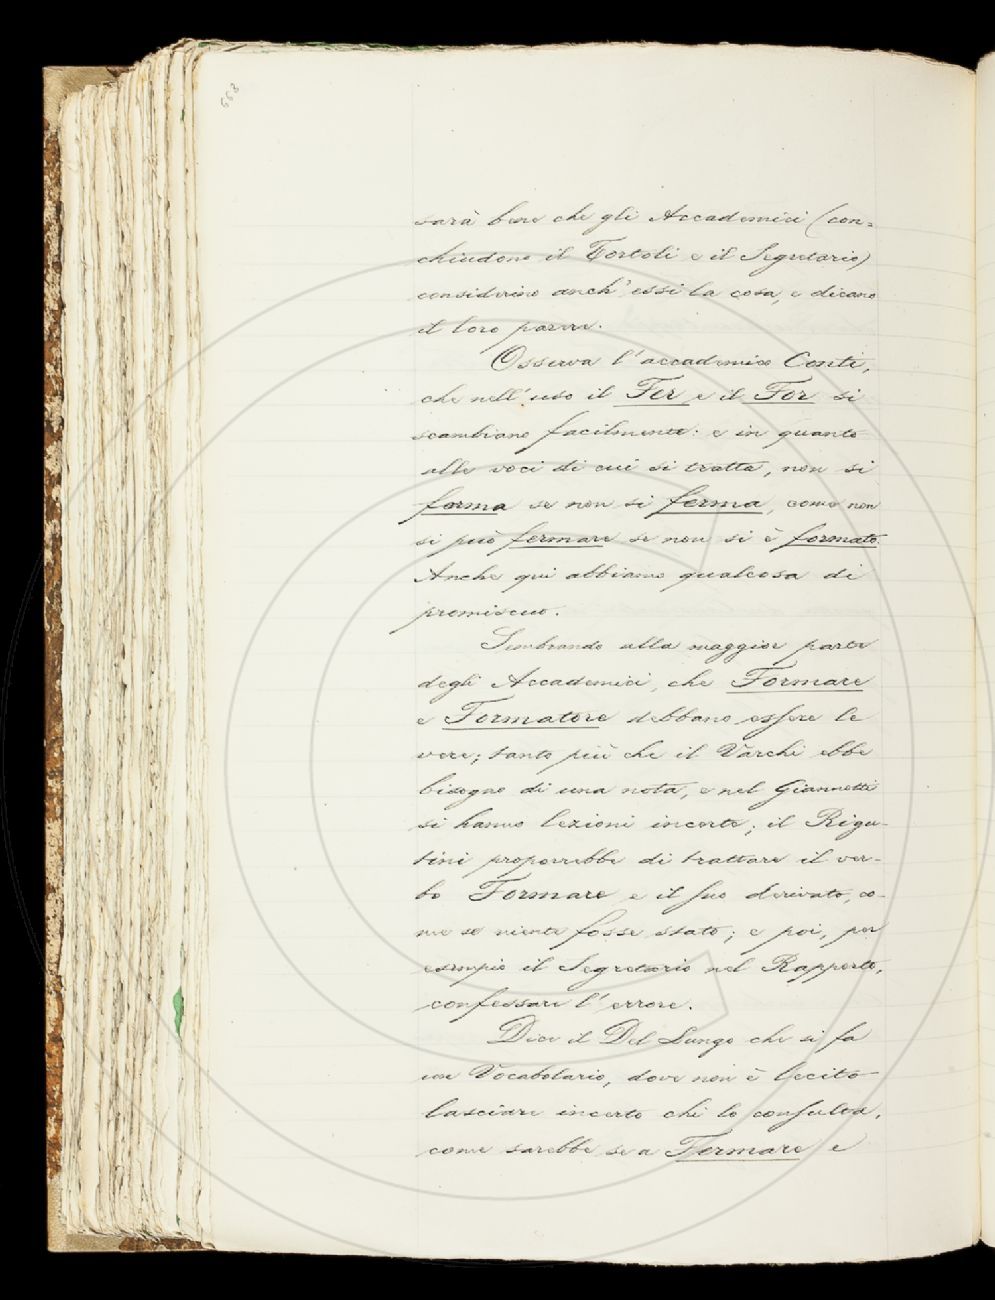 668
sarà bene che gli Accademici (con=
chiudono il Tortoli e il Segretario)
considerino anch'essi la cosa, e dicano
il loro parere.
Osserva l'accademico Conti,
che nell'uso il Fer e il For si
scambiano facilmente: e in quanto
alle voci di cui si tratta, non si
forma se non si ferma, come non
si può fermare se non si è formato.
Anche qui abbiamo qualcosa di
promiscuo.
Sembrando alla maggior parte
degli Accademici, che Formare
e Formatore debbano essere le
vere; tanto più che il Varchi ebbe
bisogno di una nota, e nel Giannotti
si hanno lezioni incerte; il Rigu-
tini proporrebbe di trattare il ver-
bo Formare e il suo derivato, co-
me se niente fosse stato; e poi, per
esempio il Segretario nel Rapporto,
confessare l'errore.
Dice il Del Lungo che si fa
un Vocabolario, dove non è lecito
lasciare incerto chi lo consulta,
come sarebbe se a Fermare e